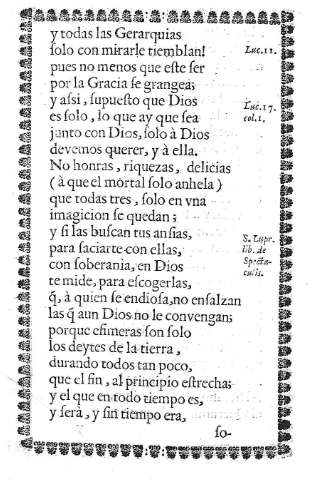 y todas las Gerarquias
ſolo con mirarle tiemblan!
Luc. 11.
pues no menos que eſte ſer
por la Gracia ſe grangea;
y aſsi, ſupueſto que Dios
Luc. 17.
es ſolo, lo que ay que ſea
col. 1.
junto con Dios, ſolo à Dios
devemos querer, y à ella.
No honras, riquezas, delicias
(à que el mortal ſolo anhela)
que todas tres, ſolo en vna
imagicion ſe quedan;
y ſi las buſcan tus anſias,
S. Lupr.
para ſaciarte con ellas,
lib. de
con ſoberania, en Dios
Specta-
te mide, para eſcogerlas,
culis.
q̃, à quien ſe endioſa, no enſalzan
las q̃ aun Dios no le convengan;
porque eſimeras ſon ſolo
los deytes de la tierra,
durando todos tan poco,
que el fin, al principio eſtrecha;
y el que en todo tiempo es,
y ſerà, y ſin tiempo era,
ſo-